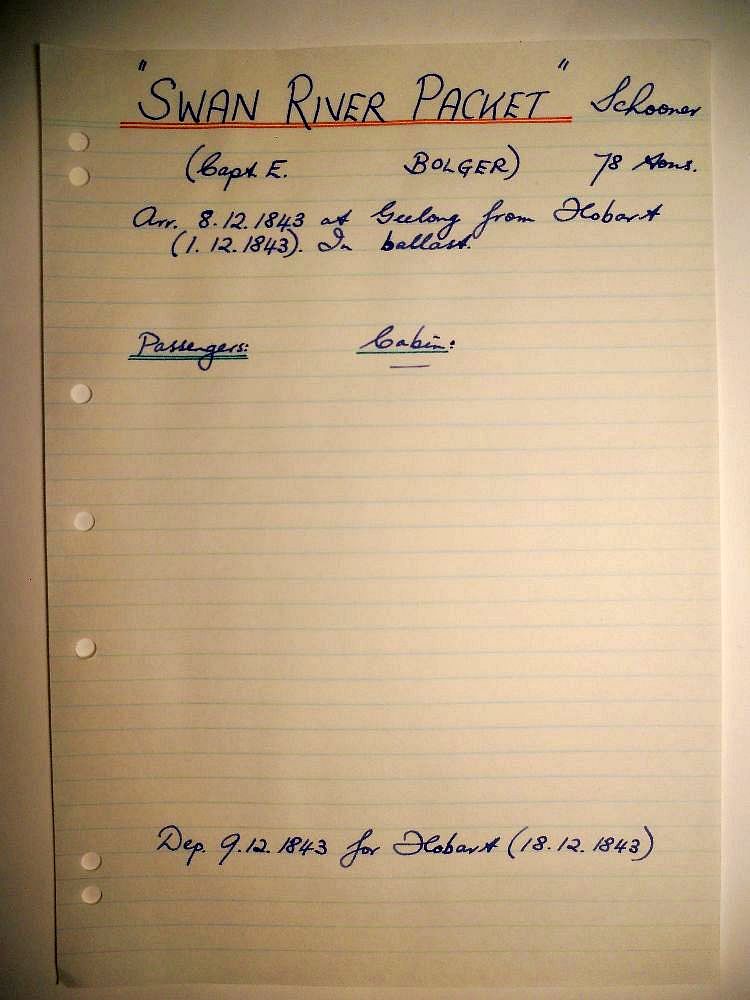 "SWAN RIVER PACKET" Schooner
(Capt. E. BOLGER) 78 tons.
Arr. 8.12.1843 at Geelong from Hobart
(1.12.1843). In ballast.
Passengers: Cabin:
Dep. 9.12.1843 for Hobart (18.12.1843)